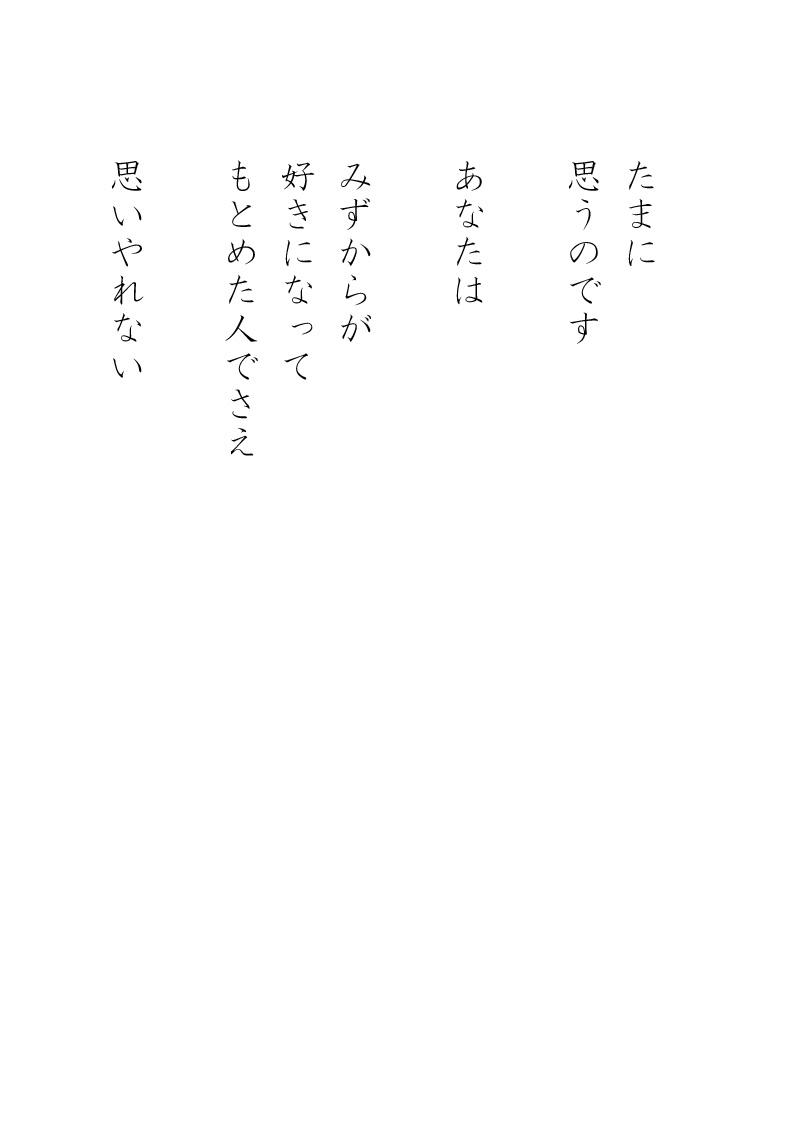 たまに
思うのです
あなたは
みずからが
好きになって
もとめた人でさえ
思いやれない